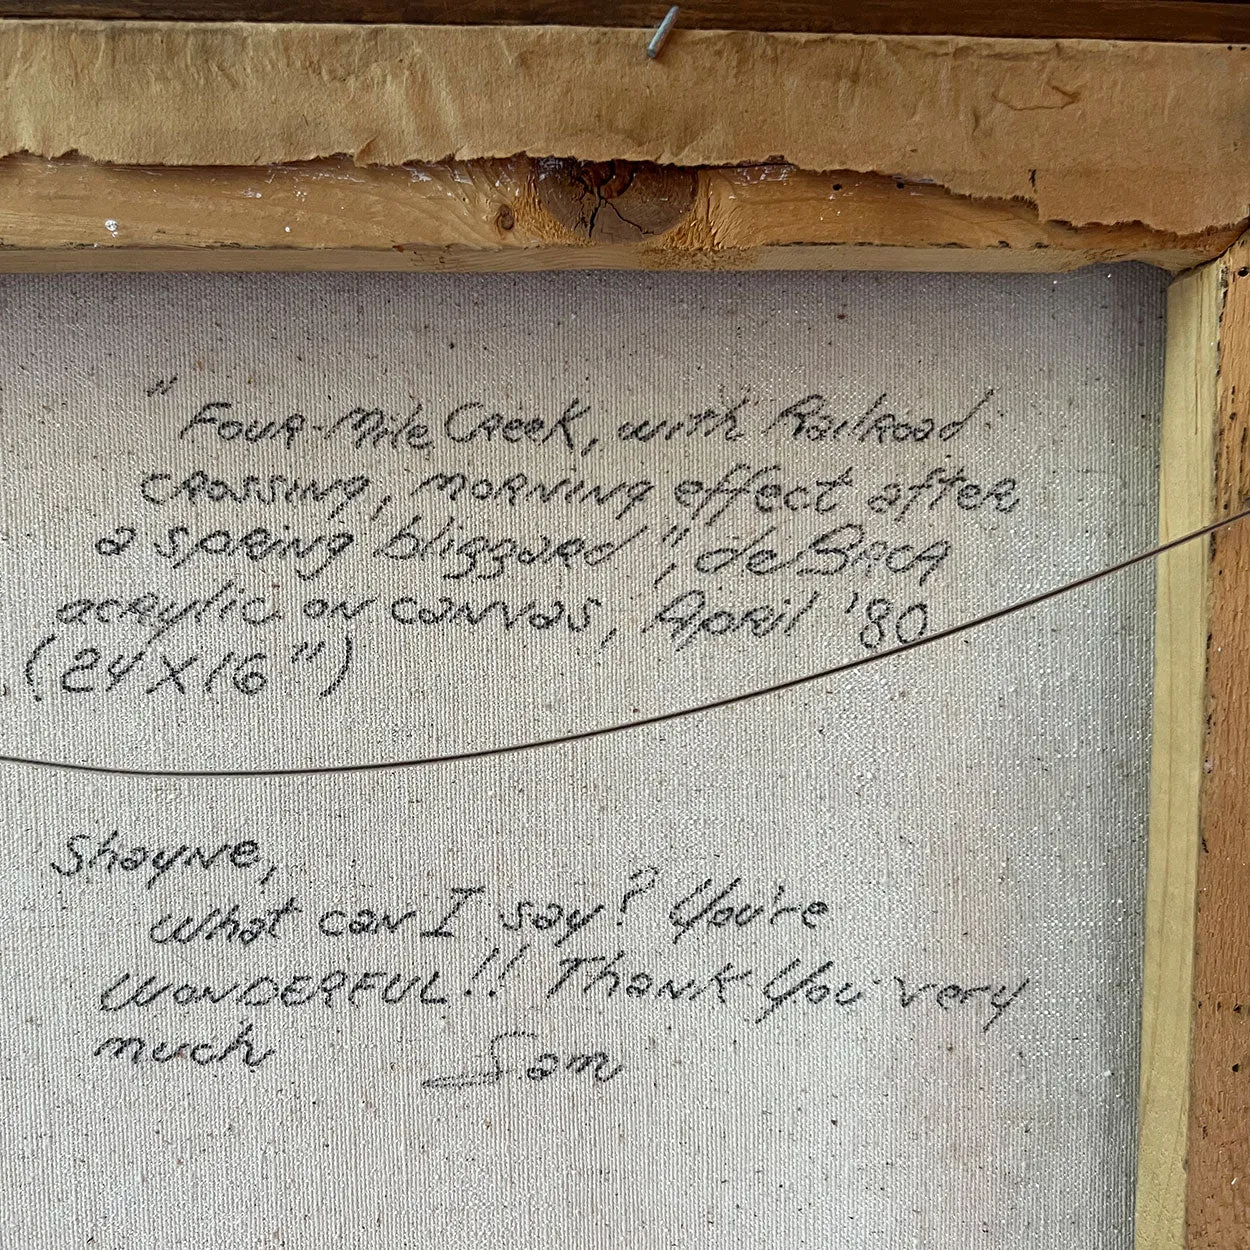 "Four-Mile Creek, with Railroad
crossing, morning effect after
a spring blizzard", deBaca
acrylic on canvas, April '80
(24 X 16")
Shayne,
What can I say? You're
WONDERFUL!! Thank You very
much Sam